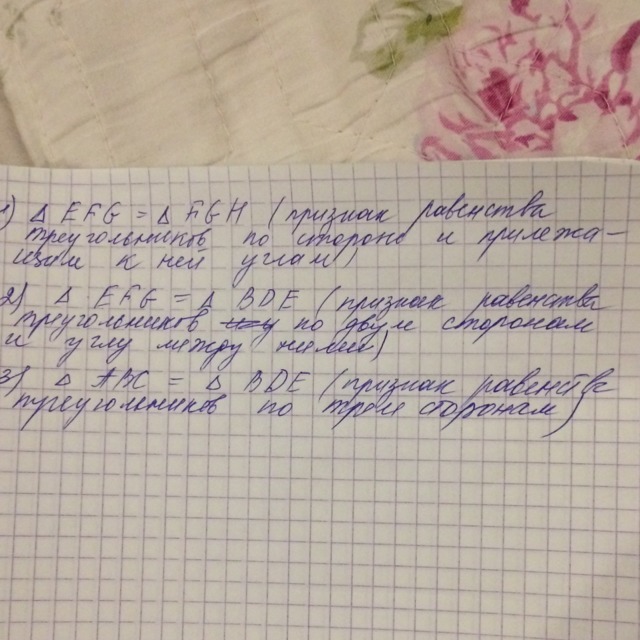 1) △ EFG = △ FGH (признак равенства
треугольников по стороне и прилежа-
щем к ней углам)
2) △ EFG = △ BDE (признак равенства
треугольников по двум сторонам
и углу между ними)
3) △ ABC = △ BDE (признак равенств
треугольников по трем сторонам)